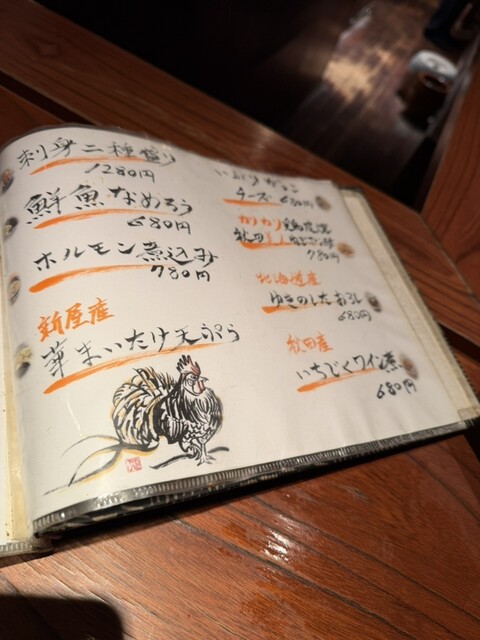 刺身二種盛り
1280円
鮮魚なめろう
680円
ホルモン煮込み
780円
新屋産
華まいたけ天ぷら
いぶりガッコ
チーズ 680円
カリカリ
秋田美人
780円
北海道産
ゆきのした おろし
680円
秋田産
いちじくワイン煮
680円